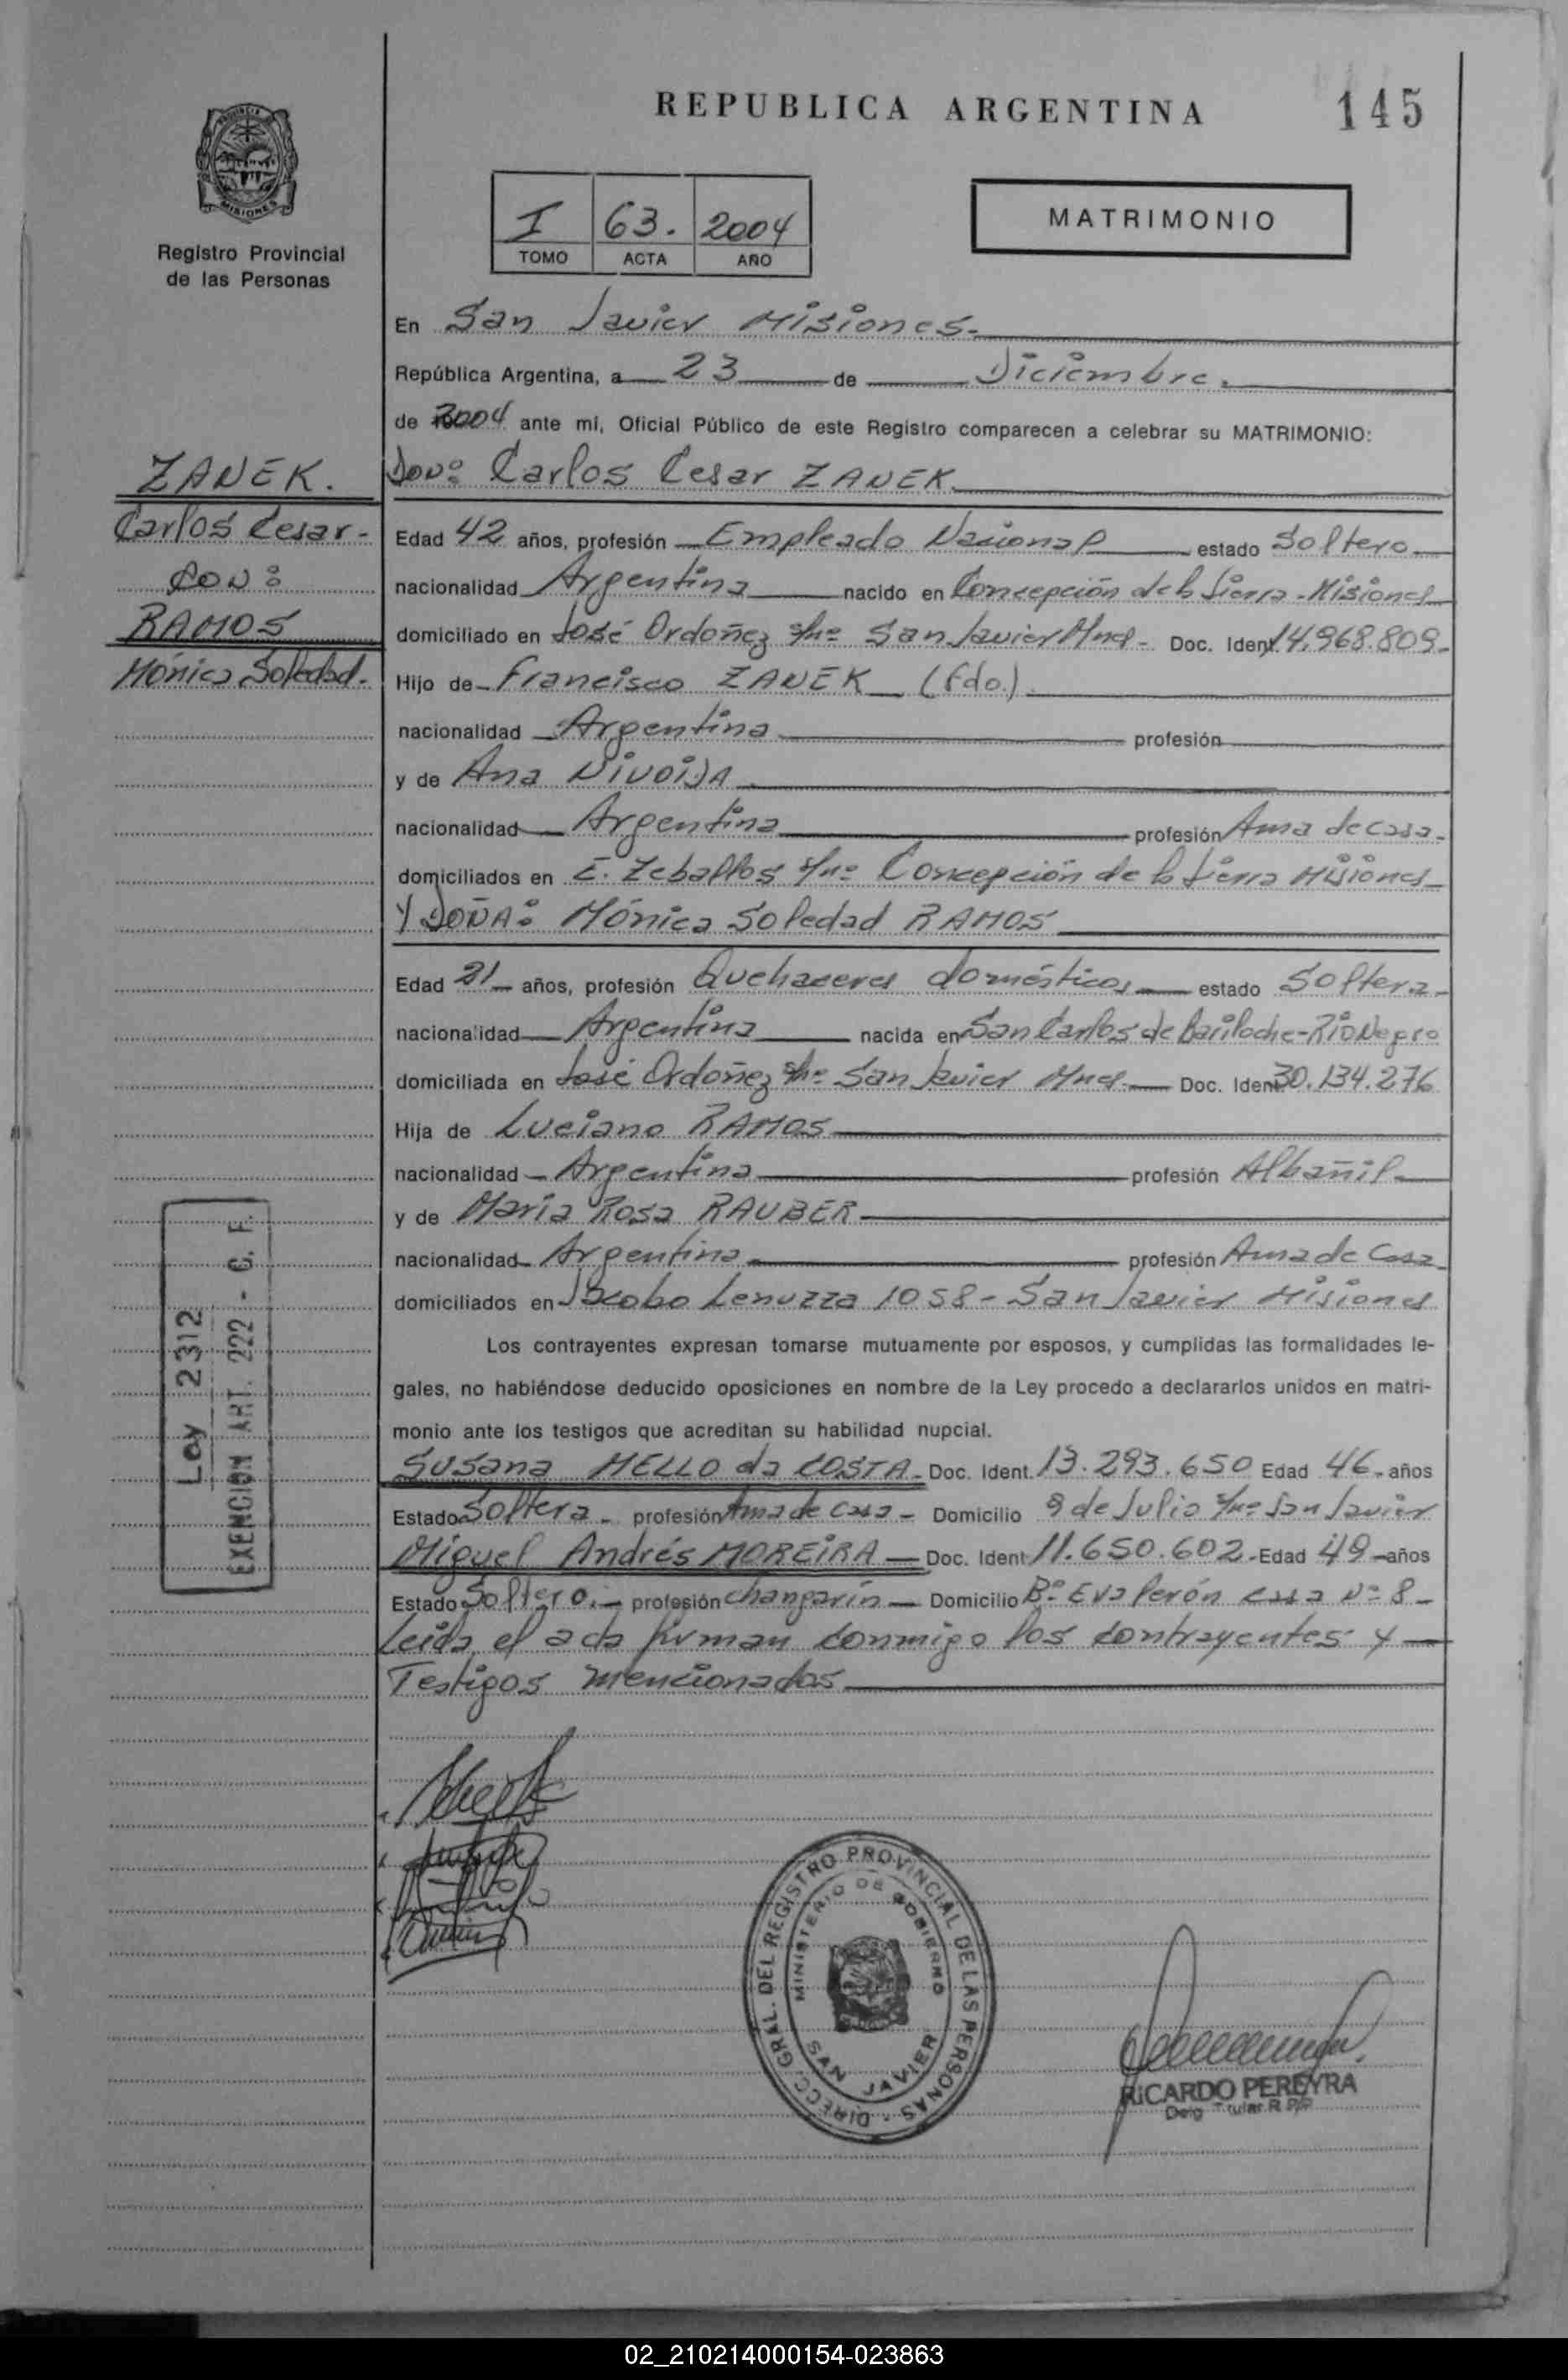 REPUBLICA ARGENTINA
145
PROVINCIA
MISIONES
Registro Provincial
de las Personas
I 63. 2004
TOMO ACTA AÑO
MATRIMONIO
En San Javier Misiones.
República Argentina, a 23 de Diciembre.
de 2004 ante mi, Oficial Público de este Registro comparecen a celebrar su MATRIMONIO:
ZANEK.
Carlos Cesar-
CON:
RAMOS
Mónica Soledad.
DON: Carlos Cesar ZANEK.
Edad 42 años, profesión Empleado Nacional estado Soltero
nacionalidad Argentina nacido en Concepción de la Sierra-Misiones
domiciliado en José Ordoñez s/nº San Javier Mnes- Doc. Ident. 14.968.809-
Hijo de Francisco ZANEK (fdo.)
nacionalidad Argentina profesión
y de Ana
nacionalidad Argentina profesión Ama de casa-
domiciliados en E. Zeballos s/nº Concepción de la Sierra Misiones
Y DOÑA: Mónica Soledad RAMOS
Edad 21 años, profesión Quehaceres domésticos estado Soltera-
nacionalidad Argentina nacida en San Carlos de Bariloche-Rio Negro
domiciliada en José Ordoñez s/nº San Javier Mnes. Doc. Ident. 30.134.276
Hija de Luciano RAMOS
nacionalidad Argentina profesión Albañil
y de María Rosa RAUBER
nacionalidad Argentina profesión Ama de Casa
domiciliados en Jacobo Lenuzza 1058- San Javier Misiones
Los contrayentes expresan tomarse mutuamente por esposos, y cumplidas las formalidades le-
gales, no habiéndose deducido oposiciones en nombre de la Ley procedo a declararlos unidos en matri-
monio ante los testigos que acreditan su habilidad nupcial.
Susana MELLO da COSTA- Doc. Ident. 13.293.650 Edad 46- años
Estado Soltera- profesión Ama de casa- Domicilio 9 de Julio s/nº San Javier
Miguel Andrés MOREIRA Doc. Ident 11.650.602- Edad 49 -años
Estado Soltero.- profesión changarín Domicilio Bº Eva Perón casa Nº 8-
Leida el acta firman conmigo los contrayentes y
Testigos mencionados
Ley 2312
EXENCION ART. 222 - C. F.
DIRECC. GRAL. DEL REGISTRO PROVINCIAL DE LAS PERSONAS
MINISTERIO DE GOBIERNO
SAN JAVIER
RICARDO PEREYRA
Deleg. Titular R.P.P.
02_210214000154-023863